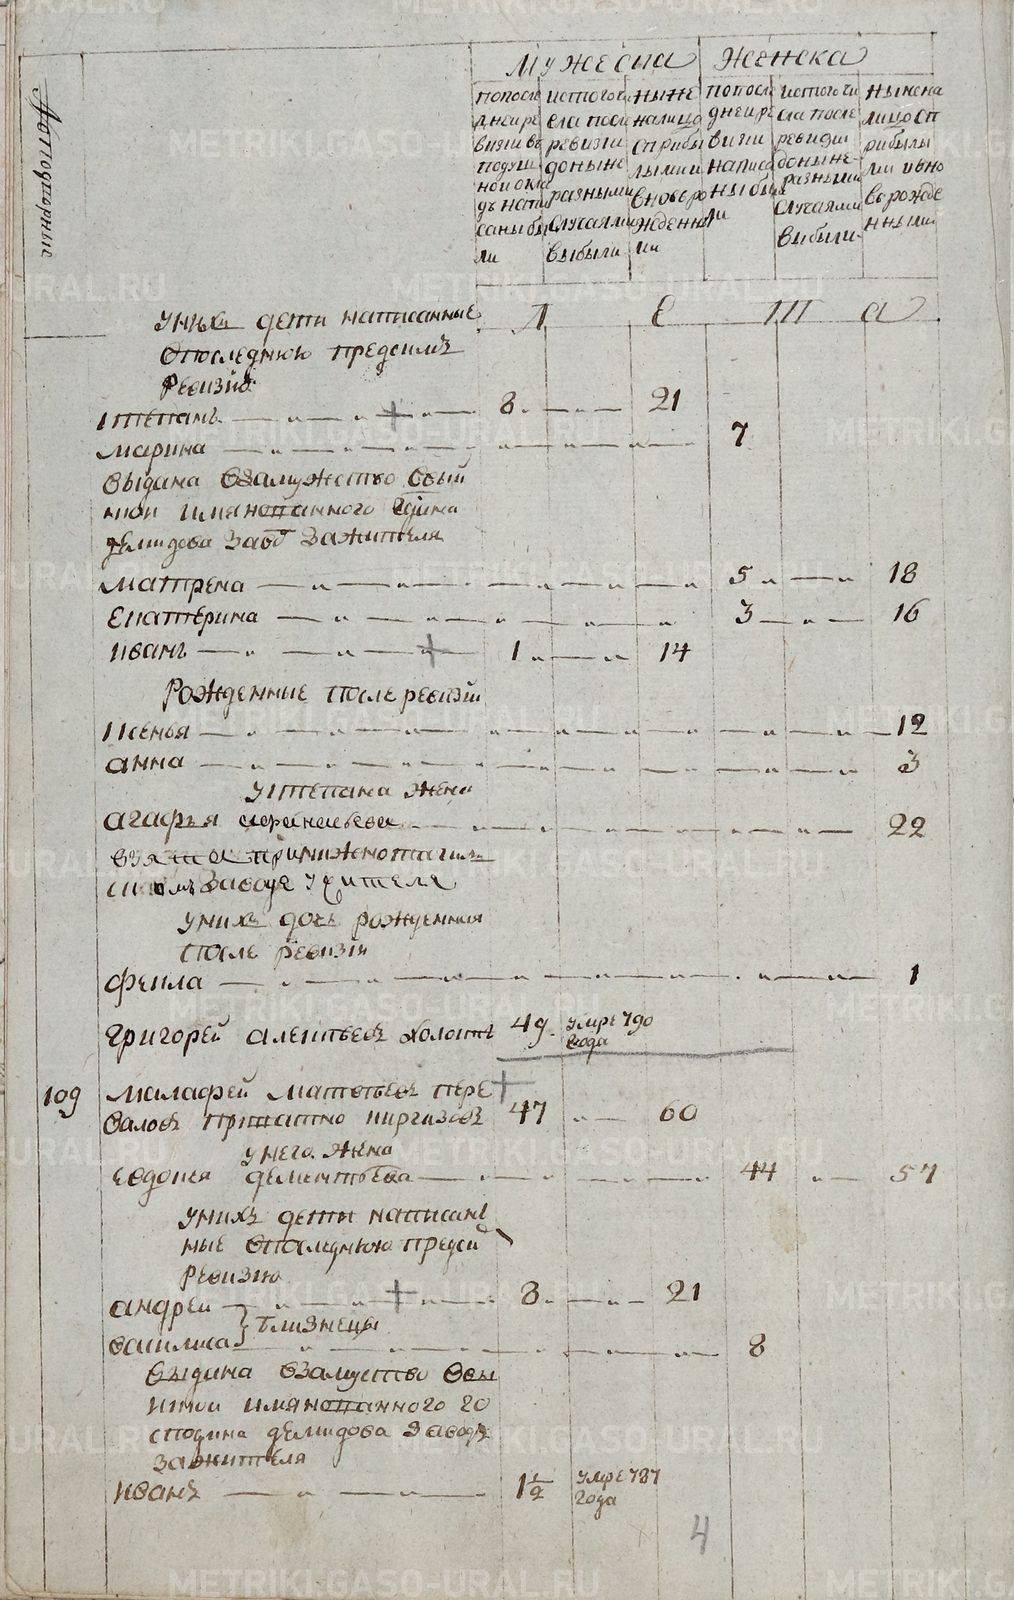 METRIKI.GASO-URAL.RU
Мужеска Женска
попосле
днеи ре
визи въ
подуш
нои окла
дъ напи
саны бы
ли
истого чи
сла посл
ревизи
доныне
разными
случаями
выбыли
ныне
налицо
сприбы
лыми и
вновь ро
жденны
ми
попосле
днеи ре
визи
написа
ны бы
ли
истого чи
сла после
ревизи
доныне
разными
случаями
выбыли
ныне на
лицо сп
рибылы
ми и вно
вь рожде
нными
Л е т а
у нихъ дети написанные
впоследнюю предсимъ
ревизию
степанъ 8 21
марина 7
выдана взамужство овый
имянованного
демидова завод зажителя
матрена 5 18
екатерина 3 16
иванъ 1 14
Рожденные после ревизи
ксенья 12
анна 3
у степана жена
агафья 22
взята
заводе жителе
у нихъ дочь рожденная
после ревизи
фекла 1
григорей алексеевъ 49 умре 790
года
109 малафей матвеевъ пере
валовъ 47 60
у него жена
евдокея дементьева 44 57
у нихъ дети написан
ные впоследнюю предси
ревизию
андреи 8 21
близнецы
василиса 8
выдана взамуство
имянованного го
сподина демидова заводъ
зажителя
иванъ 1 1/2 умре 787
года
4